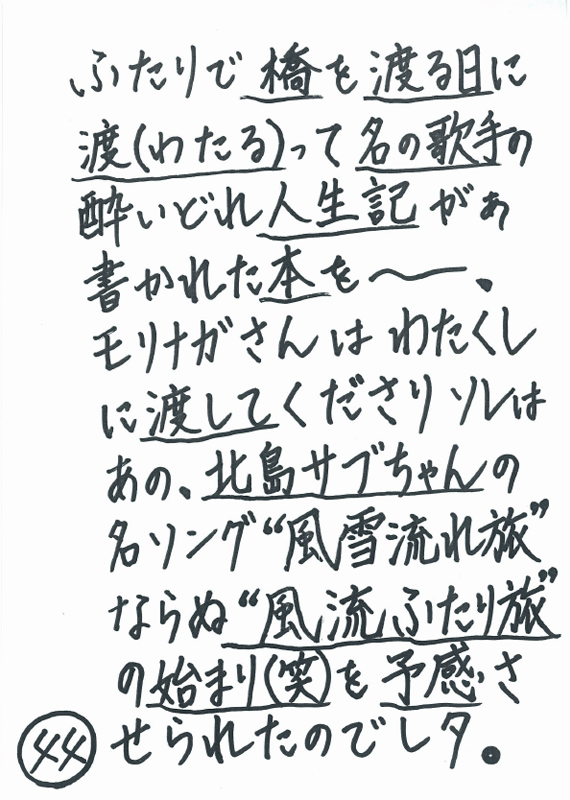 ふたりで橋を渡る日に
渡(わたる)って名の歌手の
酔いどれ人生記がぁ
書かれた本を〜、
モリナガさんはわたくし
に渡してくださりソレは
あの、北島サブちゃんの
名ソング“風雪流れ旅”
ならぬ“風流ふたり旅”
の始まり(笑)を予感さ
せられたのでしタ。
44